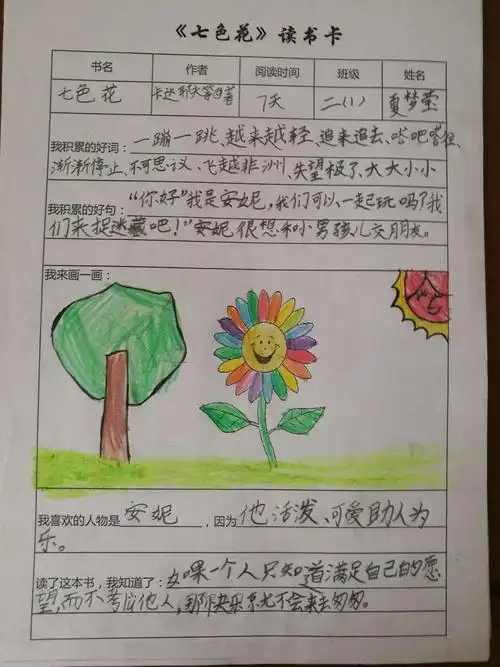 《七色花》读书卡
书名 作者 阅读时间 班级 姓名
七色花 卡达耶夫等著 7天 二(1) 夏梦莹
我积累的好词：一蹦一跳、越来越轻、追来追去、
渐渐停止、不可思议、飞越非洲、失望极了、大大小小
我积累的好句：“你好”我是安妮，我们可以一起玩吗？我
们来捉迷藏吧！”安妮很想和小男孩儿交朋友。
我来画一画：
我喜欢的人物是 安妮 ，因为 他活泼、可爱助人为
乐。
读了这本书，我知道了：如果一个人只知道满足自己的愿
望，而不考虑他人，那你快乐就会来去匆匆。